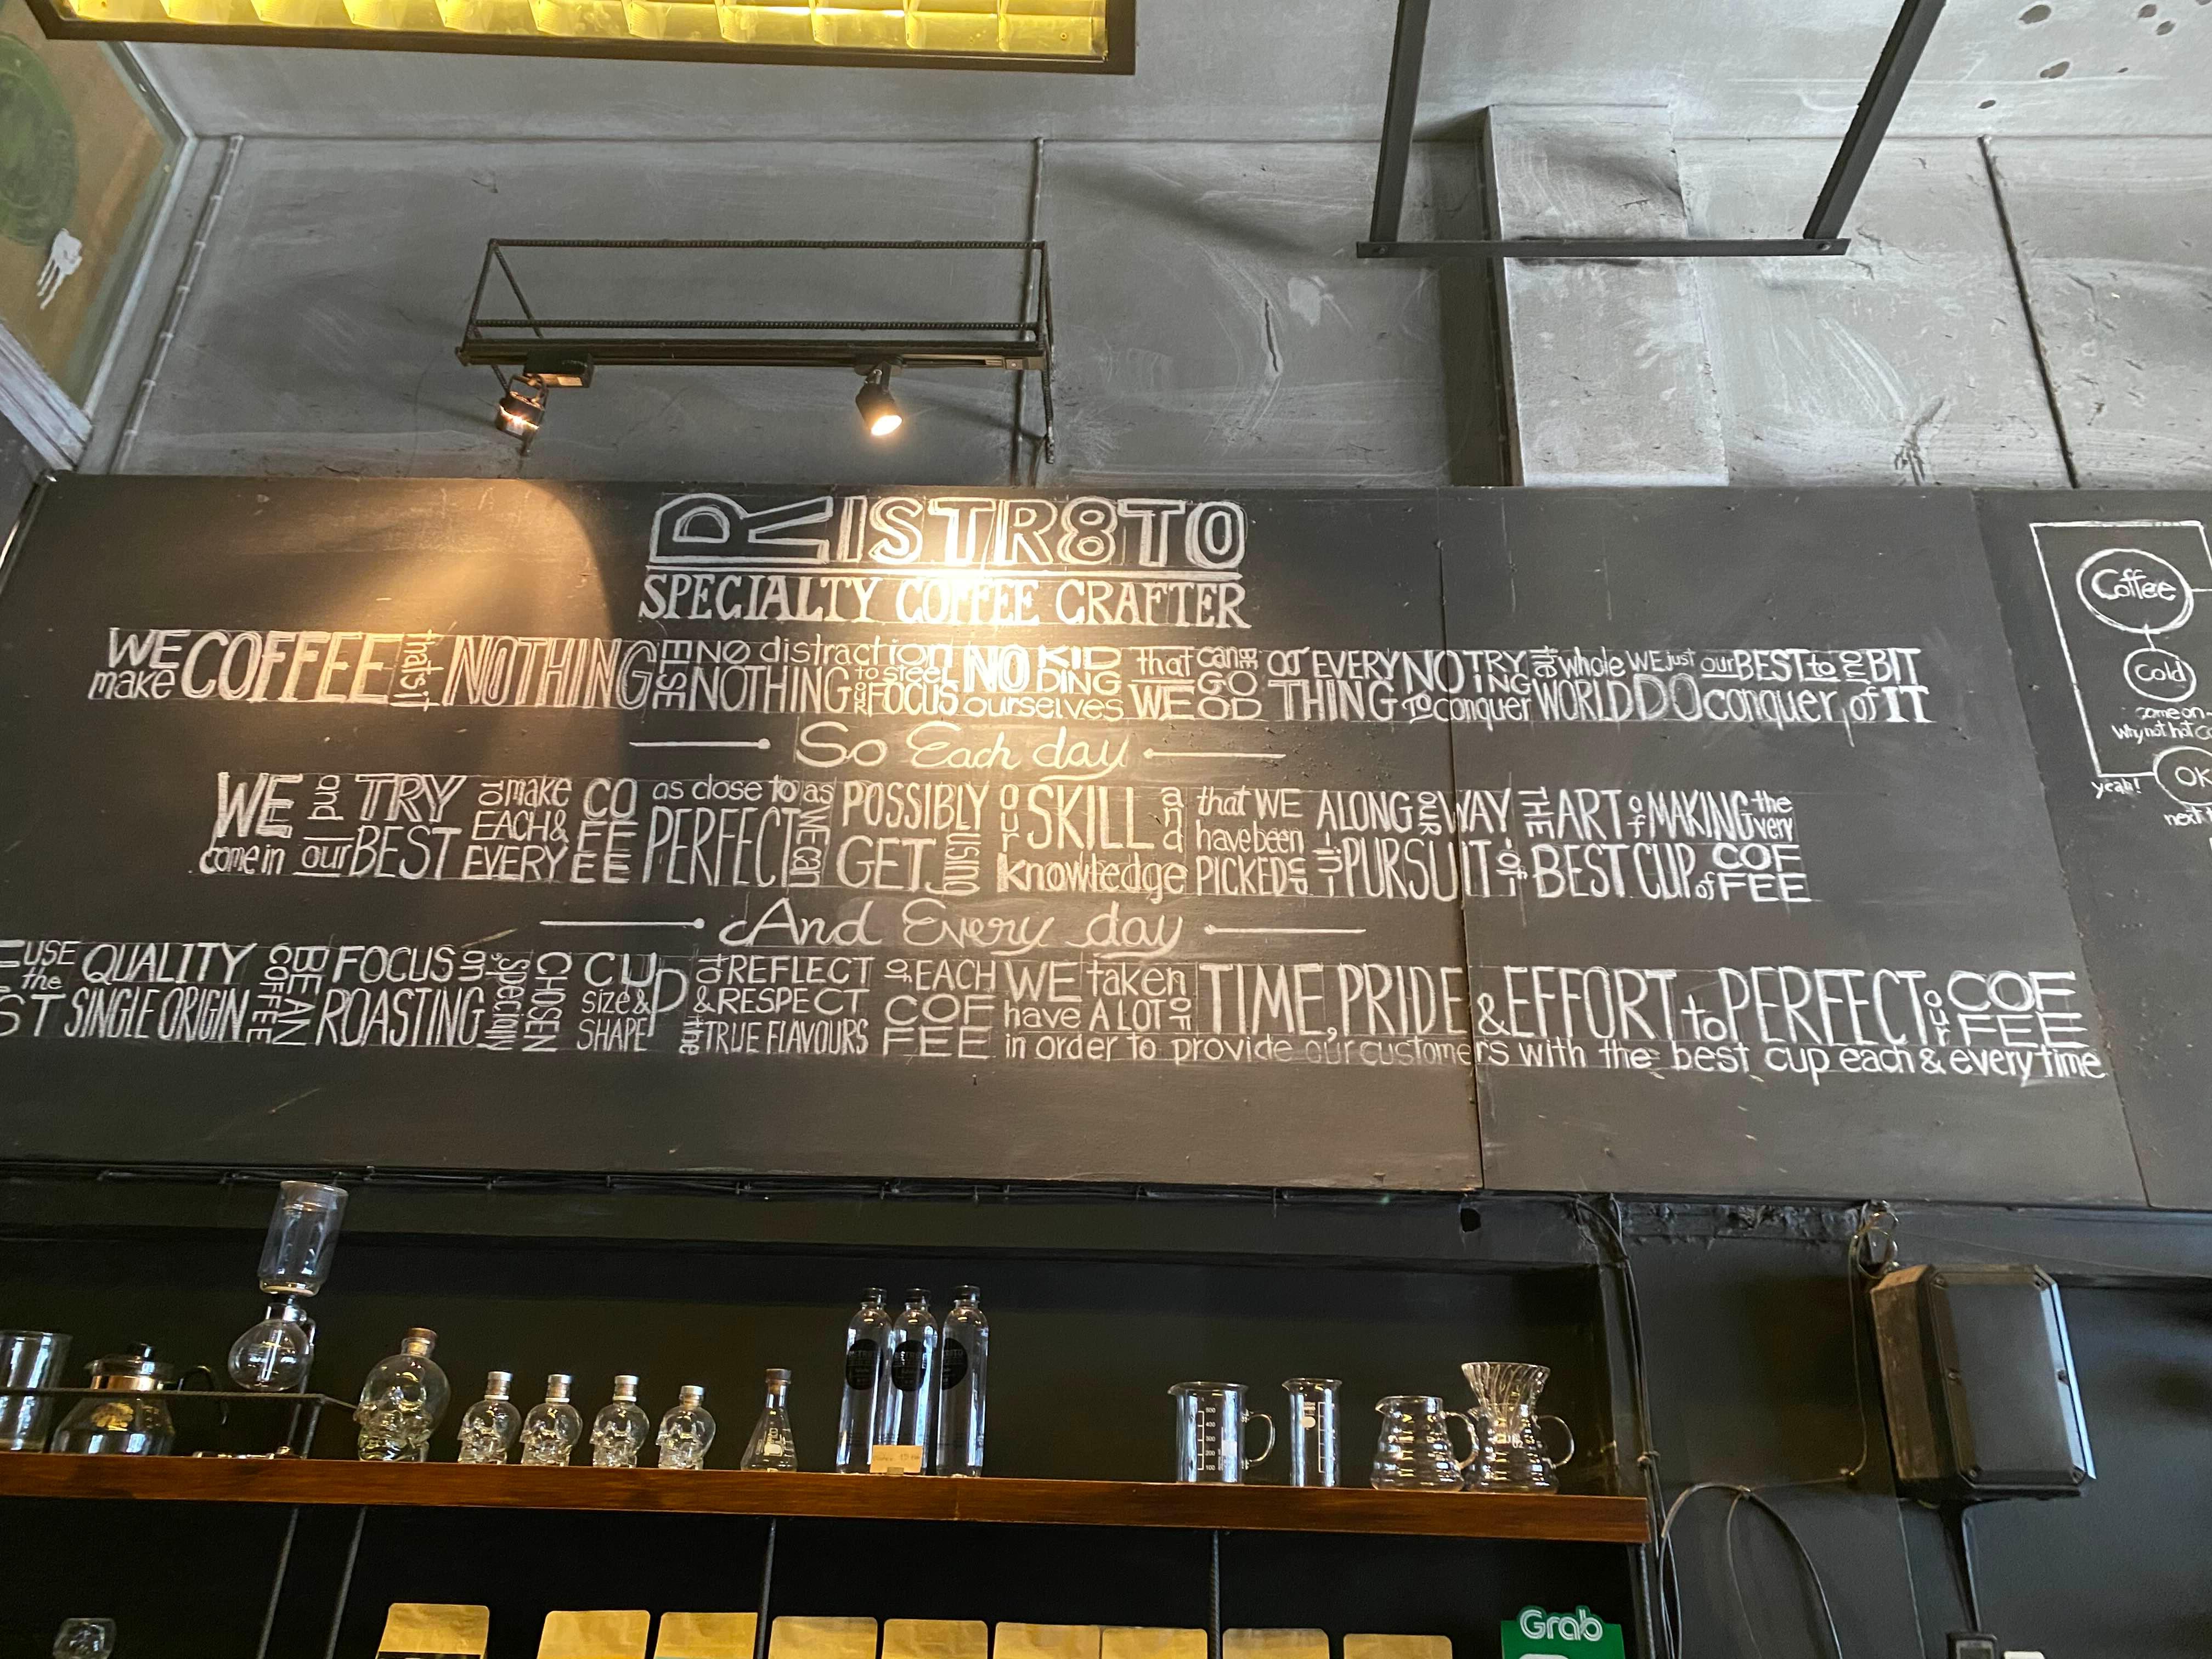 RISTR8TO
SPECIALTY COFFEE CRAFTER
WE make COFFEE that's it NOTHING ELSE NO distraction NOTHING to steel our FOCUS NO KIDDING ourselves that WE can BE GOOD at EVERYTHING NO TRYING TO conquer the whole WORLD WE just DO our BEST to conquer our BIT of IT
So Each day
WE come in and TRY our BEST TO make EACH & EVERY COFFEE as close to PERFECT as WE can POSSIBLY GET USING our SKILL and knowledge that WE have been PICKED UP ALONG OUR WAY IN PURSUIT of THE ART of MAKING the very BEST CUP of COFFEE
And Every day
USE the QUALITY ST SINGLE ORIGIN COFFEE BEAN FOCUS on ROASTING Specially CHOSEN CUP size & SHAPE to REFLECT & RESPECT the TRUE FLAVOURS of EACH COFFEE WE have taken A LOT OF TIME, PRIDE & EFFORT to PERFECT our COFFEE
in order to provide our customers with the best cup each & every time
Coffee
Cold
come on
Why not hot
OK
yeah!
next
500
400
300
200
100
Grab